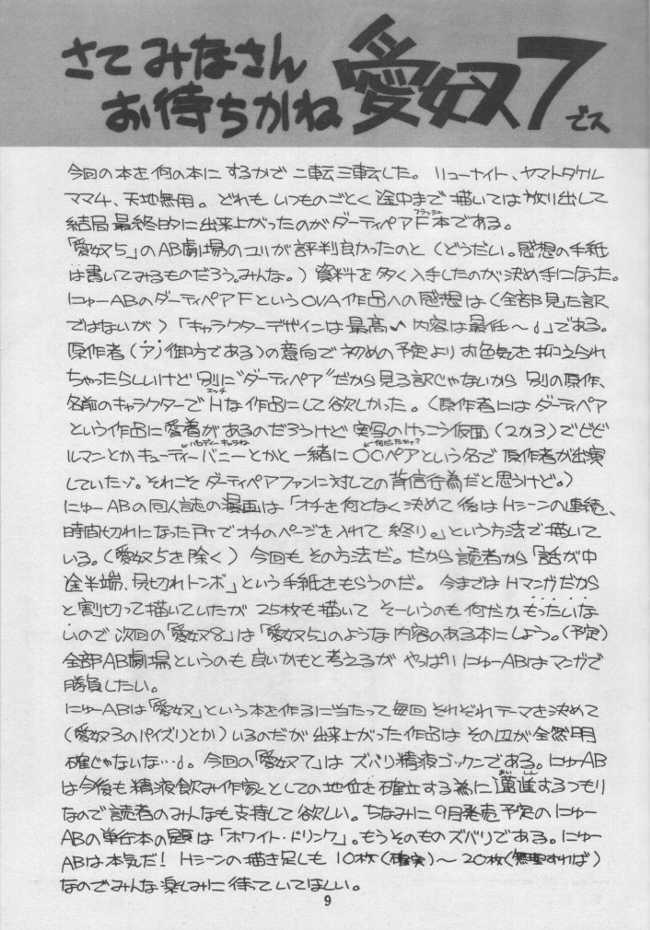 さてみなさん
お待ちかね 愛奴7 でス
今回の本を何の本にするかで二転三転した。リューナイト、ヤマトタケル
ママ4、天地無用。どれもいつものごとく途中まで描いては放り出して
結局最終的に出来上がったのがダーティペアF本である。
フラッシュ
「愛奴5」のAB劇場のユリが評判良かったのと(どうだい。感想の手紙
は書いてみるものだろう。みんな。)資料を多く入手したのが決め手になった。
にゅーABのダーティペアFというOVA作品への感想は(全部見た訳
ではないが)「キャラクターデザインは最高♪内容は最低〜」である。
原作者(ア)御方である)の意向で初めの予定よりお色気を抑えられ
ちゃったらしいけど別に"ダーティペア"だから見る訳じゃないから別の原作、
名前のキャラクターでHな作品にして欲しかった。(原作者にはダーティペア
エッチ
という作品に愛着があるのだろうけど実写のけっこう仮面(2か3)でピピ
ルマンとかキューティーバニーとかと一緒に〇〇ペアという名で原作者が出演
していたゾ。それこそダーティペアファンに対しての背信行為だと思うけど。)
にゅーABの同人誌の漫画は「オチを何となく決めて後はHシーンの連続、
時間切れになった所でオチのページを入れて終り。」という方法で描いて
いる。(愛奴5を除く)今回もその方法だ。だから読者から「話が中
途半端、尻切れトンボ」という手紙をもらうのだ。今まではHマンガだから
と割切って描いていたが25枚も描いてそーいうのも何だかもったいな
いので次回の「愛奴8」は「愛奴5」のような内容のある本にしよう。(予定)
全部AB劇場というのも良いかもと考えるがやっぱりにゅーABはマンガで
勝負したい。
にゅーABは「愛奴」という本を作るに当たって毎回それぞれテーマを決めて
(愛奴3のパイズリとか)いるのだが出来上がった作品はその辺が全然明
確じゃないな…。今回の「愛奴7」はズバリ精液ゴックンである。にゅーAB
は今後も精液飲み作家としての地位を確立する為に邁進するつもり
まいしん
なので読者のみんなも支持して欲しい。ちなみに9月発売予定のにゅー
ABの単行本の題は「ホワイト・ドリンク」。もうそのものズバリである。にゅー
ABは本気だ!Hシーンの描き足しも10枚(確実)〜20枚(無理すれば)
なのでみんな楽しみに待っていてほしい。
9